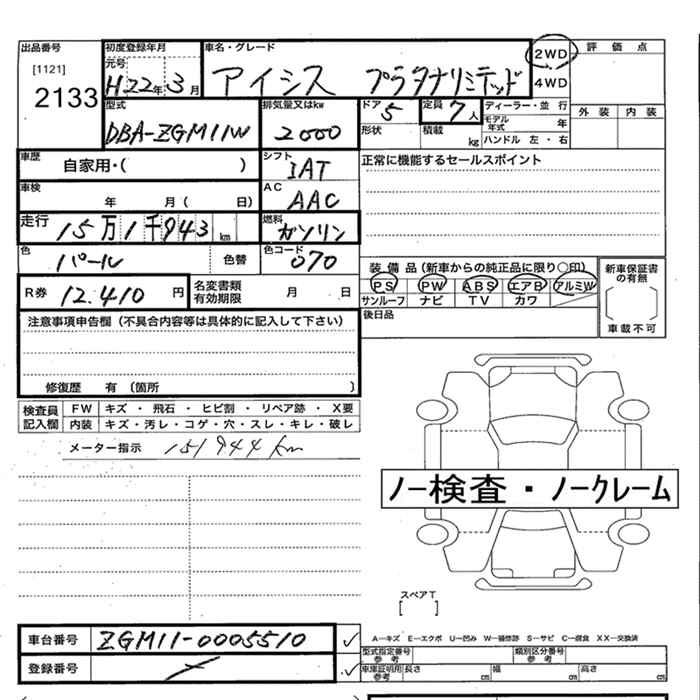 出品番号 初度登録年月 車名・グレード 2WD 評価点
[1121] 元号 H22年3月 アイシス プラタナリミテッド 4WD
2133 型式 排気量又はkw ドア 5 定員 7人 ディーラー・並行 外装 内装
DBA-ZGM11W 2000 形状 積載 kg モデル年式 年
ハンドル 左・右
車歴 自家用・( ) シフト IAT 正常に機能するセールスポイント
車検 年 月( 日) AC AAC
走行 15万1千943km 燃料 ガソリン
色 パール 色替 色コード 070 装備品(新車からの純正品に限り○印) 新車保証書の有無
R券 12.410円 名変書類有効期限 月 日 PS PW ABS エアB アルミW
サンルーフ ナビ TV カワ
注意事項申告欄(不具合内容等は具体的に記入して下さい) 後日品 車載不可
修復歴 有(箇所 )
検査員記入欄 FW キズ・飛石・ヒビ割・リペア跡・X要
内装 キズ・汚レ・コゲ・穴・スレ・キレ・破レ
メーター指示 151944km
ノー検査・ノークレーム
スペアT
[ ]
車台番号 ZGM11-0005510 A-キズ E-エクボ U-凹み W-補修跡 S-サビ C-腐食 XX-交換済
型式指定番号参考 類別区分番号参考
登録番号 車庫証明用参考 長さ cm 幅 cm 高さ cm